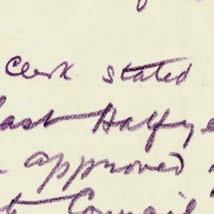 Clerk stated
last Half y
approved
Council